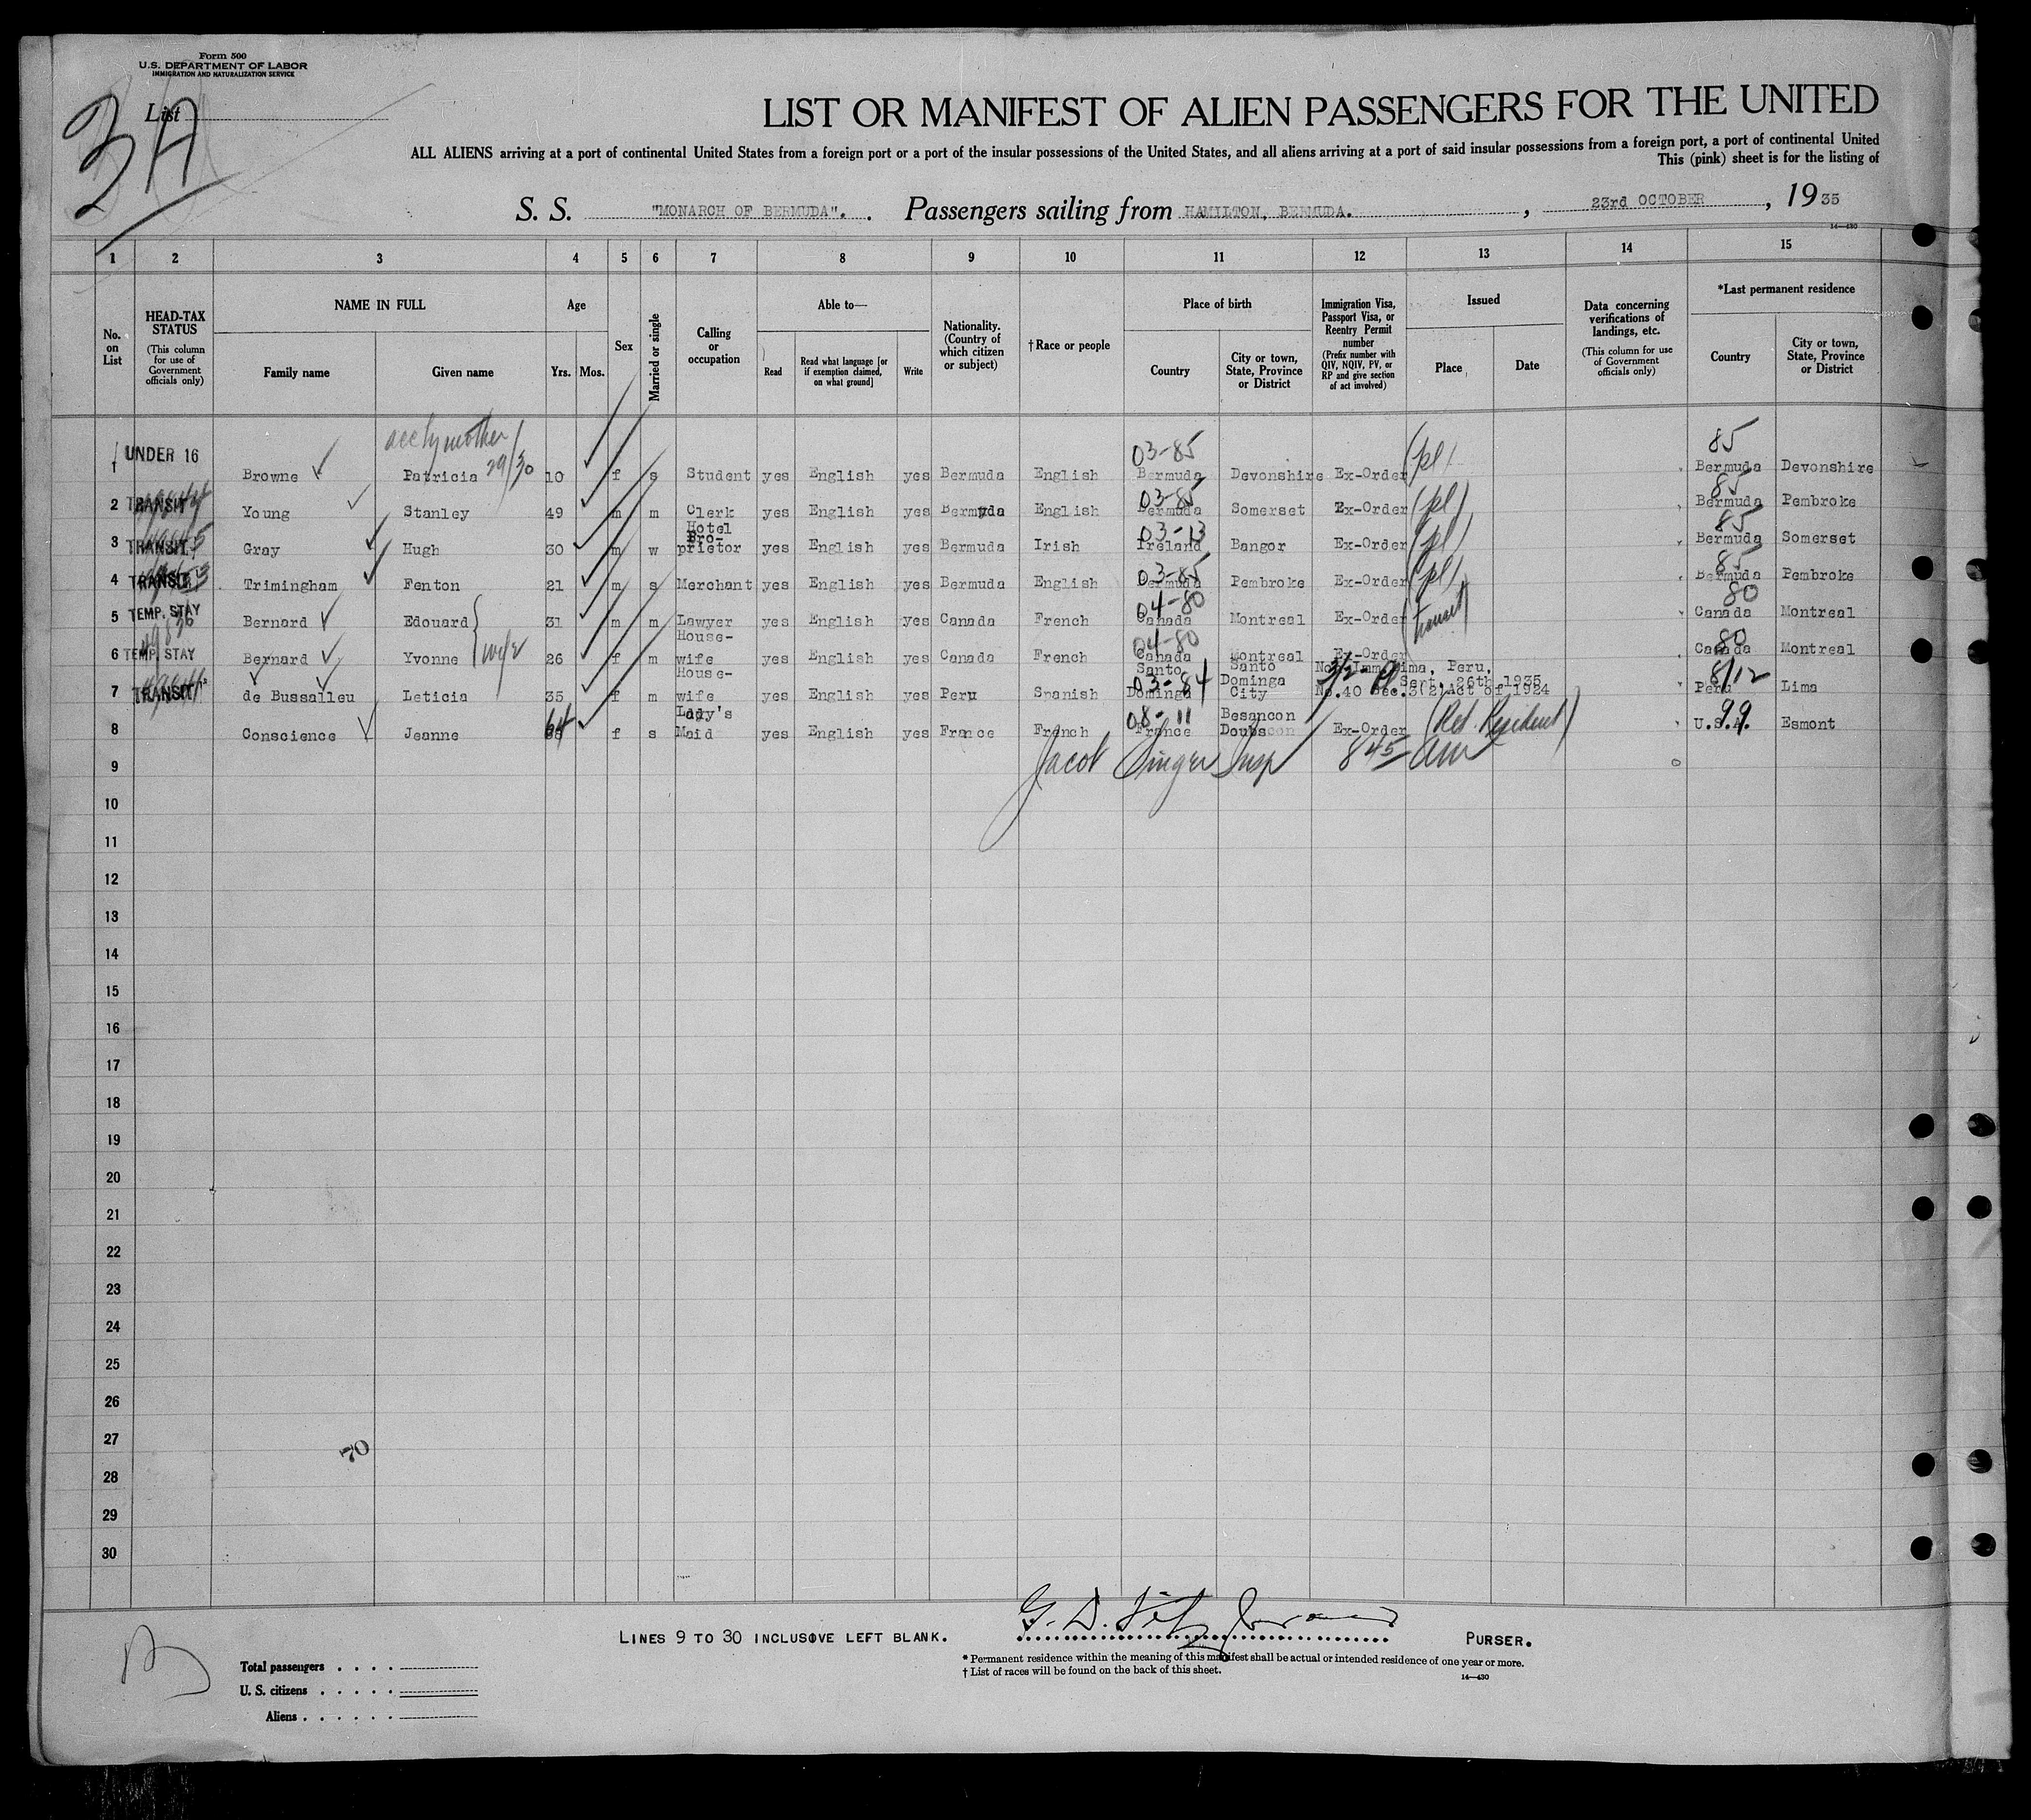 Form 500
U.S. DEPARTMENT OF LABOR
IMMIGRATION AND NATURALIZATION SERVICE
List
3A
LIST OR MANIFEST OF ALIEN PASSENGERS FOR THE UNITED
ALL ALIENS arriving at a port of continental United States from a foreign port or a port of the insular possessions of the United States, and all aliens arriving at a port of said insular possessions from a foreign port, a port of continental United
This (pink) sheet is for the listing of
S. S. "MONARCH OF BERMUDA". . Passengers sailing from HAMILTON, BERMUDA. , 23rd OCTOBER , 19 35
14—430
1 2 3 4 5 6 7 8 9 10 11 12 13 14 15
No. on List
HEAD-TAX STATUS (This column for use of Government officials only)
NAME IN FULL Family name Given name
Age Yrs. Mos.
Sex
Married or single
Calling or occupation
Able to— Read Read what language [or if exemption claimed, on what ground] Write
Nationality. (Country of which citizen or subject)
†Race or people
Place of birth Country City or town, State, Province or District
Immigration Visa, Passport Visa, or Reentry Permit number (Prefix number with QIV, NQIV, PV, or RP and give section of act involved)
Issued Place Date
Data concerning verifications of landings, etc. (This column for use of Government officials only)
*Last permanent residence Country City or town, State, Province or District
accby mother 29/30 03-85 85
1 UNDER 16 Browne Patricia 10 f s Student yes English yes Bermuda English Bermuda Devonshire Ex-Order (pl) Bermuda Devonshire
03-85 85
2 TRANSIT Young Stanley 49 m m Clerk yes English yes Bermuda English Bermuda Somerset Ex-Order (pl) Bermuda Pembroke
03-13 85
3 TRANSIT Gray Hugh 30 m w Hotel Pro-prietor yes English yes Bermuda Irish Ireland Bangor Ex-Order (pl) Bermuda Somerset
03-85 85
4 TRANSIT Trimingham Fenton 21 m s Merchant yes English yes Bermuda English Bermuda Pembroke Ex-Order (pl) Bermuda Pembroke
04-80 80
5 TEMP. STAY Bernard Edouard 31 m m Lawyer yes English yes Canada French Canada Montreal Ex-Order (transit) Canada Montreal
04-80 80
6 TEMP. STAY Bernard Yvonne wife 26 f m House-wife yes English yes Canada French Canada Montreal Ex-Order Canada Montreal
03-84 8/12
7 TRANSIT de Bussalleu Leticia 35 f m House-wife yes English yes Peru Spanish Santo Dominga Santo Dominga City Lima, Peru, Sept. 26th 1935 No.40 Sec.3(2)Act of 1924 Peru Lima
08-11 99
8 Conscience Jeanne 64 f s Lady's Maid yes English yes France French France Besancon Doubs Ex-Order (Ret. Resident) U.S.A. Esmont
9 Jacob Singer Insp 845 am
10
11
12
13
14
15
16
17
18
19
20
21
22
23
24
25
26
27
70
28
29
30
LINES 9 TO 30 INCLUSOVE LEFT BLANK. PURSER.
* Permanent residence within the meaning of this manifest shall be actual or intended residence of one year or more.
† List of races will be found on the back of this sheet.
14—430
Total passengers
U. S. citizens
Aliens